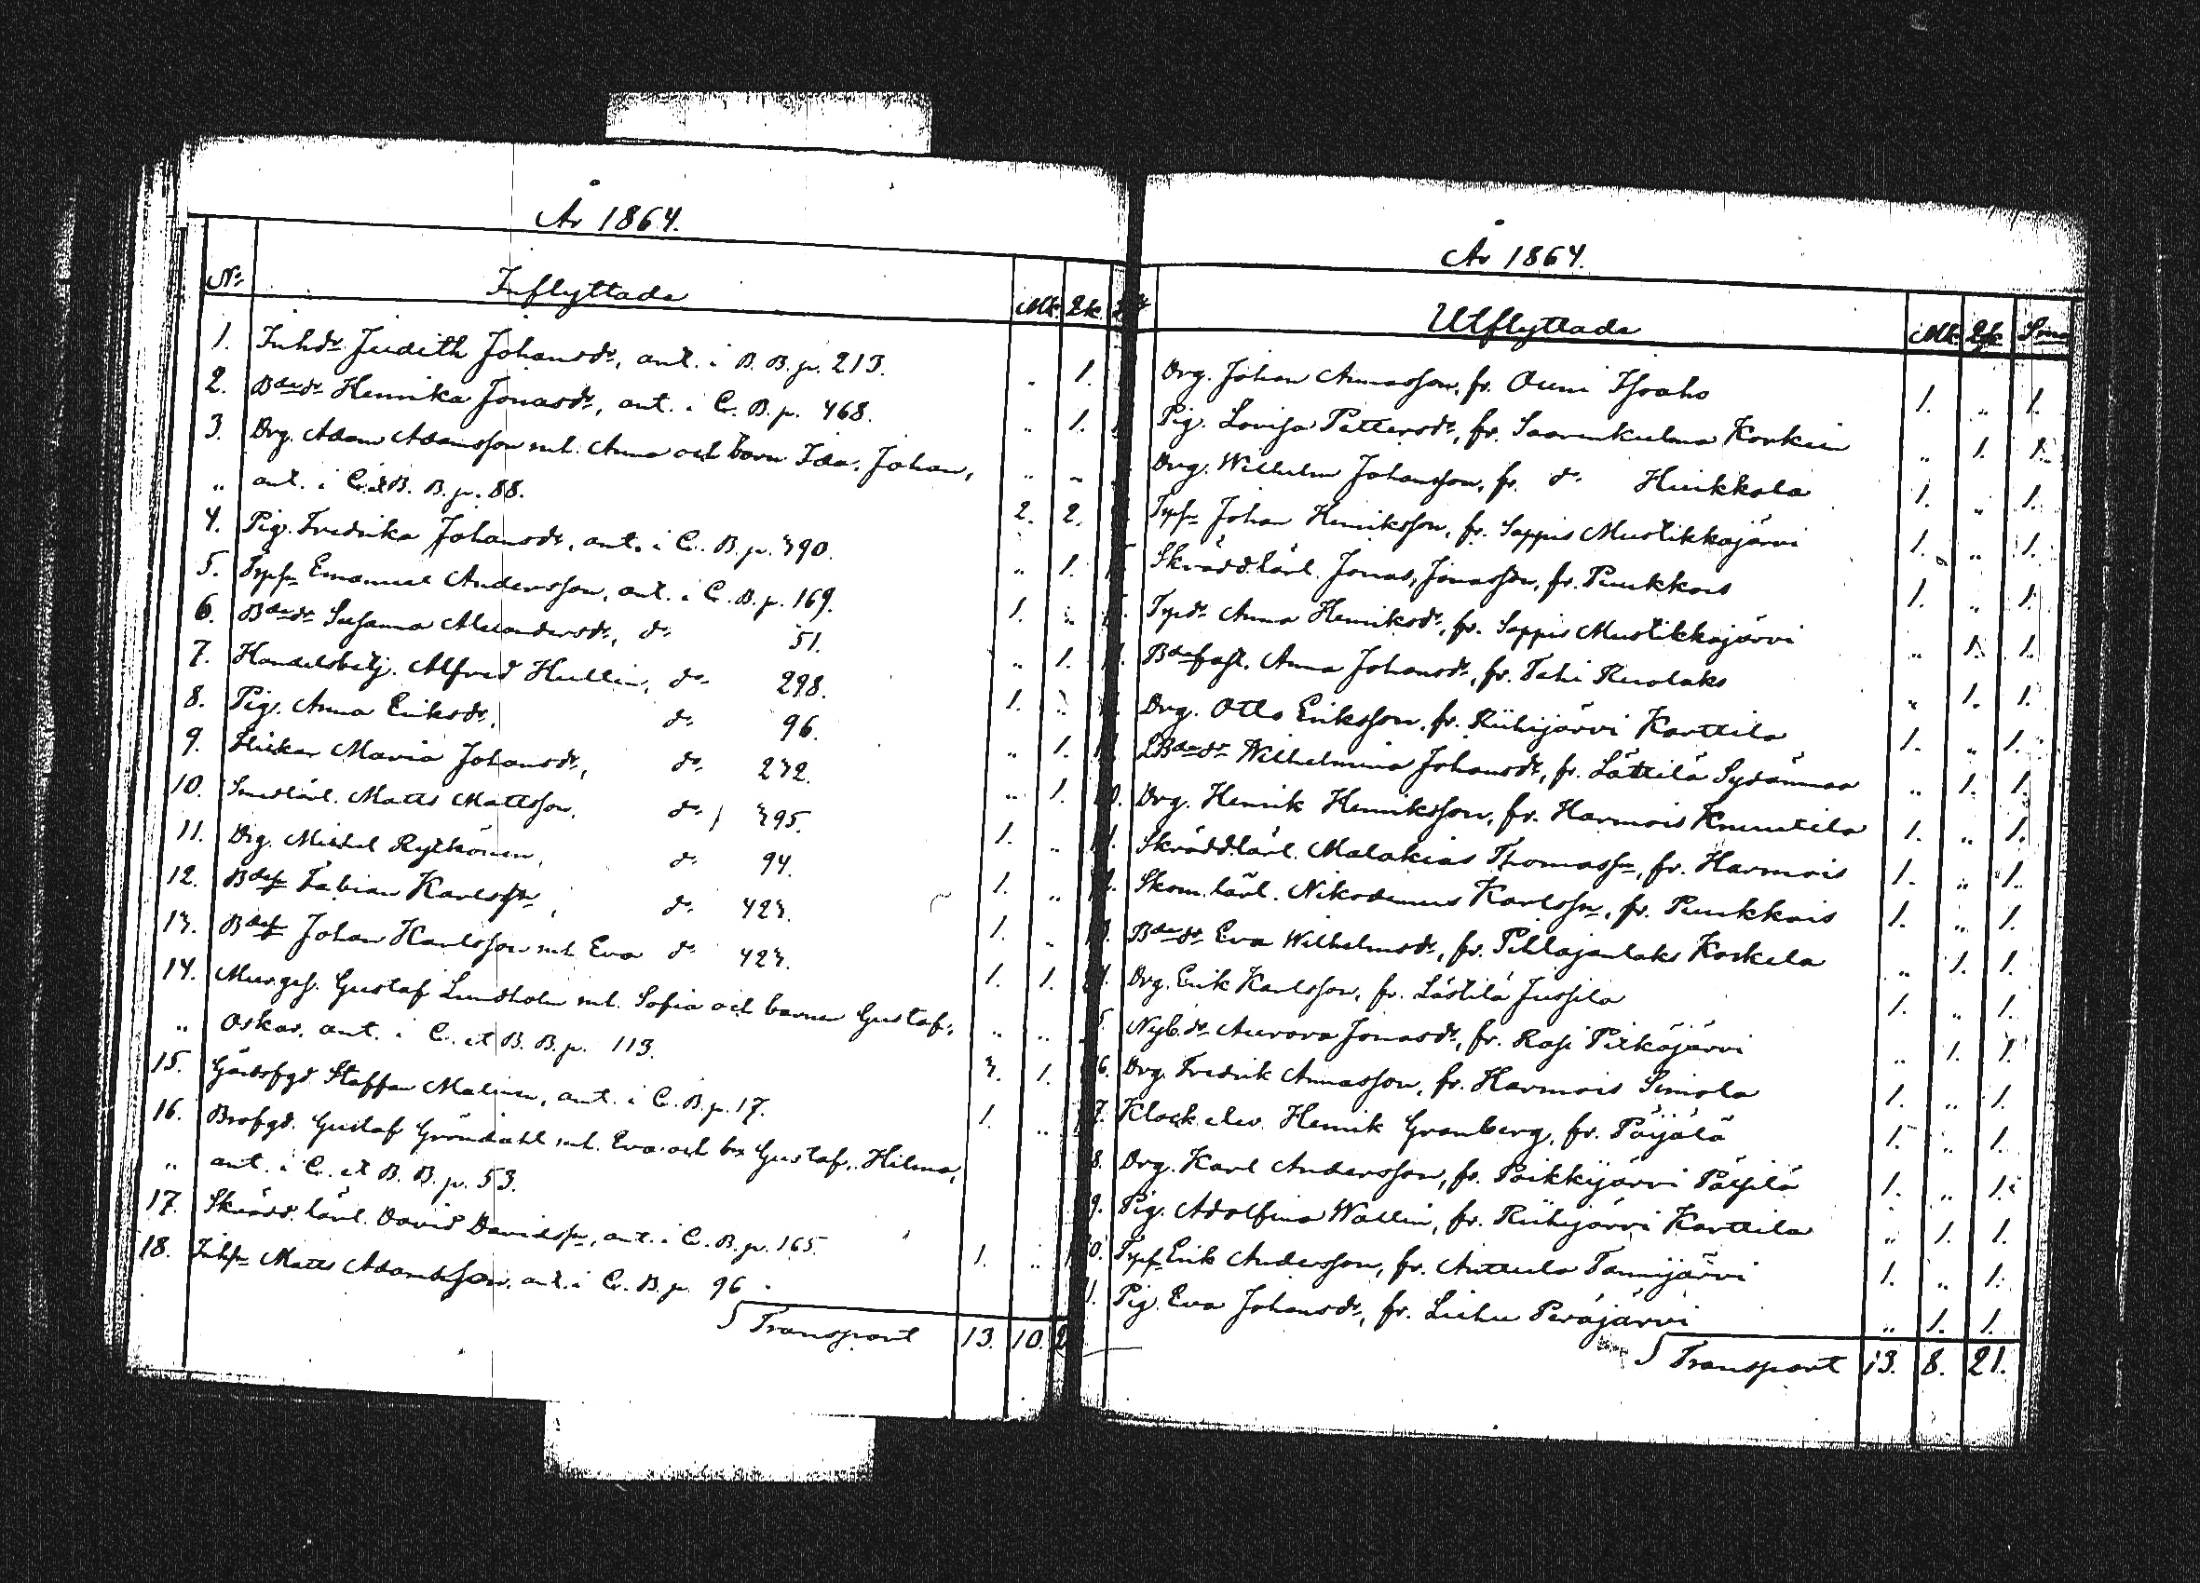 År 1864.
No Inflyttade Mk. Qk.
1. Inhdr Judith Johansdr, ant. i B. B. p. 213. „ 1.
2. Bdedr Henrika Jonasdr, ant. i C. B. p. 468. „ 1.
3. Drg. Adam Adamsson m.h. Anna och barn Ida, Johan, „ „
„ ant. i C. et B. B. p. 88. 2. 2.
4. Pig. Fredrika Johansdr, ant. i C. B. p. 390. „ 1.
5. Trpsn Emanuel Andersson, ant. i C. B. p. 169. 1. „
6. Bdedr Susanna Alexandersdr, do 51. „ 1.
7. Handelsbetj. Alfred Hullin, do 298. 1. „
8. Pig. Anna Eriksdr, do 96. „ 1.
9. Flickan Maria Johansdr, do 232. „ 1.
10. Smedlärl. Matts Mattsson, do 395. 1. „
11. Drg. Michel Rytkönen, do 94. 1. „
12. Bdesn Fabian Karlssn, do 423. 1. „
13. Bdesn Johan Karlsson m.h. Eva do 423. 1. 1.
14. Murges. Gustaf Lundholm m.h. Sofia och barnen Gustaf, „ „
„ Oskar, ant. i C. et B. B. p. 113. 3. 1.
15. Gårdsfgd Staffan Malinen, ant. i C. B. p. 17. 1. „
16. Brofgd. Gustaf Gröndahl m.h. Eva och bn Gustaf, Hilma,
„ ant. i C. et B. B. p. 53.
17. Skrädd. lärl. David Davidssn, ant. i C. B. p. 165. 1. „
18. Inhsn Matts Adamsson, ant. i C. B. p. 96
Transport 13. 10.
År 1864.
Utflyttade Mk. Qk. Sma
Drg. Johan Annasson, fr. Ouni Isoaho 1. „ 1.
Pig. Lovisa Pettersdr, fr. Saarenkulma Korkein „ 1. 1.
Drg. Wilhelm Johansson, fr. do Huikkola 1. „ 1.
Trpsn Johan Henriksson, fr. Seppis Mustikkajärvi 1. „ 1.
Skräddlärl. Jonas Jonasson, fr. Puukkois 1. „ 1.
Trpdr Anna Henriksdr, fr. Seppis Mustikkajärvi „ 1. 1.
Bdefast. Anna Johansdr, fr. Tehi Ruolaks „ 1. 1.
Drg. Otto Eriksson, fr. Riihijärvi Karttila 1. „ 1.
Bdedr Wilhelmina Johansdr, fr. Lättilä Sydänmaa „ 1. 1.
0. Drg. Henrik Henriksson, fr. Harmois Knuutila 1. „ 1.
1. Skräddlärl. Malakias Thomassn, fr. Harmois 1. „ 1.
2. Skom.lärl. Nikodemus Karlssn, fr. Puukkois 1. „ 1.
Bdedr Eva Wilhelmsdr, fr. Pihlajanlaks Koskela „ 1. 1.
Drg. Erik Karlsson, fr. Lästilä Jussila 1. „ 1.
5. Nyb.dr Aurora Jonasdr, fr. Rasi Pitkäjärvi „ 1. 1.
6. Drg. Fredrik Annasson, fr. Harmois Simola 1. „ 1.
7. Klock.elev. Henrik Granberg, fr. Päijälä 1. „ 1.
8. Drg. Karl Andersson, fr. Poikkijärvi Päijlä 1. „ 1.
9. Pig. Adolfina Wallin, fr. Riihijärvi Karttila „ 1. 1.
0. Trpsn Erik Andersson, fr. Anttula Tammijärvi 1. „ 1.
1. Pig. Eva Johansdr, fr. Liehu Peräjärvi „ 1. 1.
Transport 13. 8. 21.